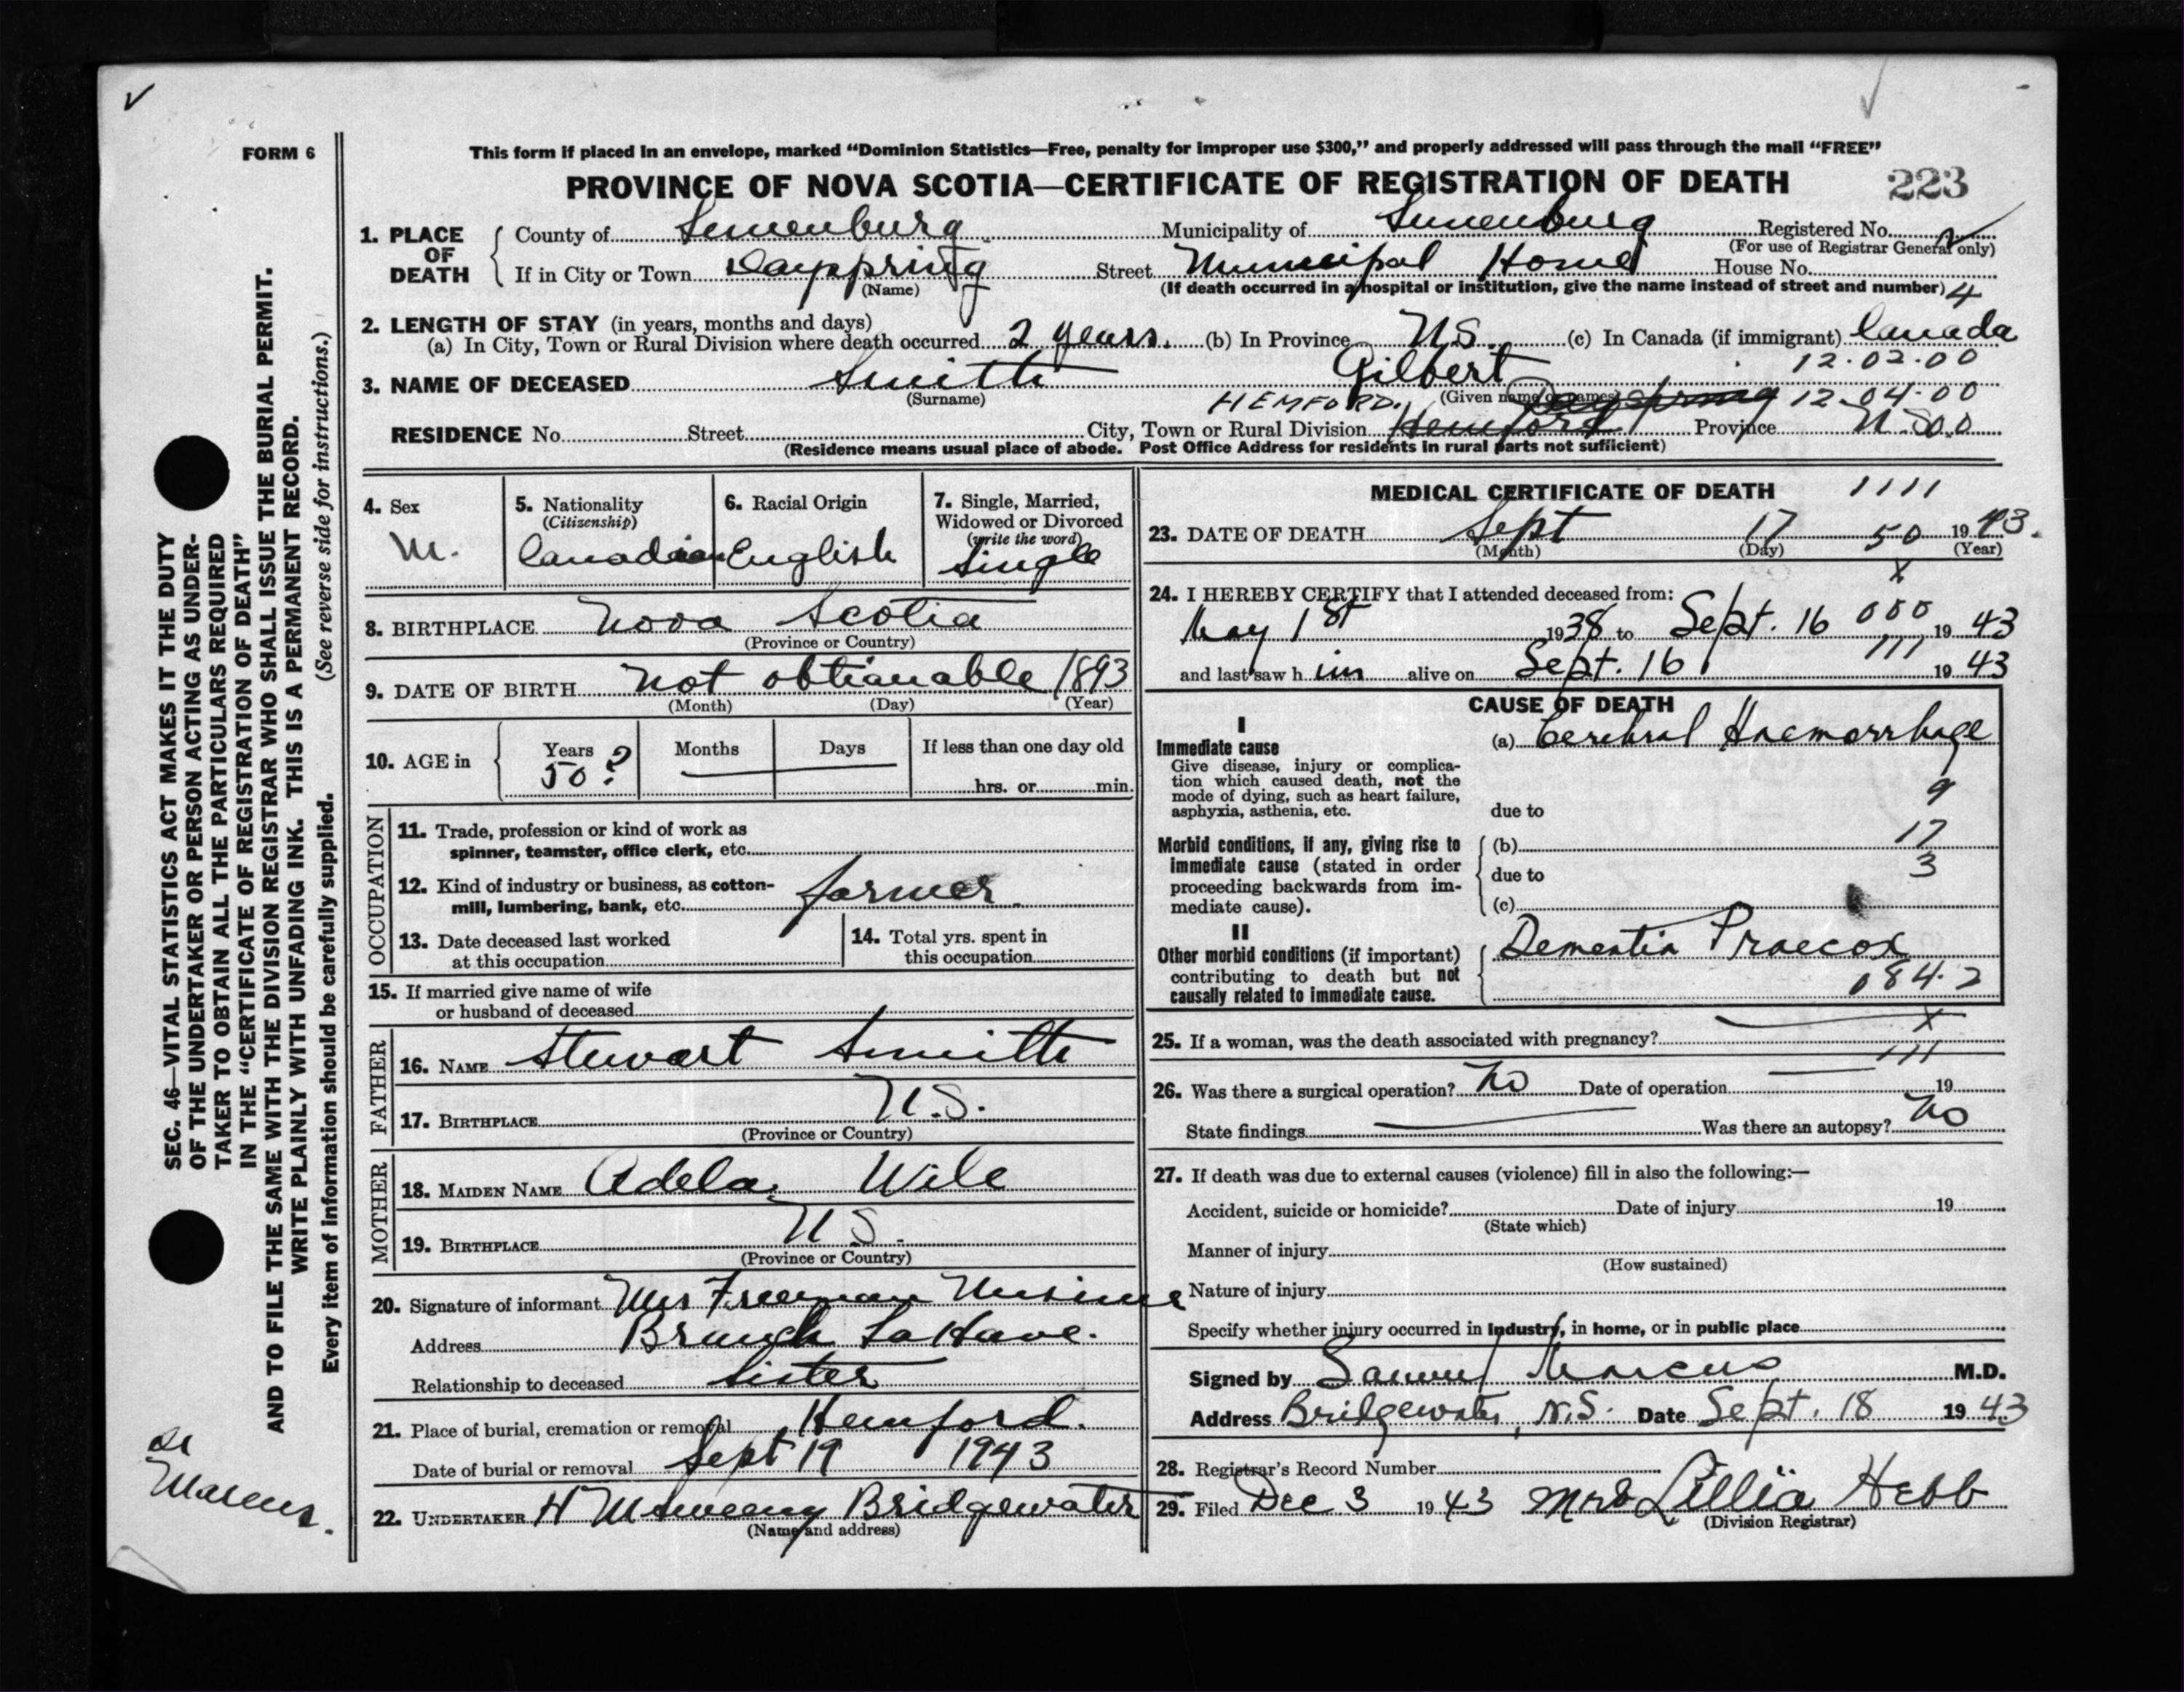 FORM 6
This form if placed in an envelope, marked “Dominion Statistics—Free, penalty for improper use $300,” and properly addressed will pass through the mail “FREE”
PROVINCE OF NOVA SCOTIA—CERTIFICATE OF REGISTRATION OF DEATH 223
SEC. 46—VITAL STATISTICS ACT MAKES IT THE DUTY
OF THE UNDERTAKER OR PERSON ACTING AS UNDER-
TAKER TO OBTAIN ALL THE PARTICULARS REQUIRED
IN THE “CERTIFICATE OF REGISTRATION OF DEATH”
AND TO FILE THE SAME WITH THE DIVISION REGISTRAR WHO SHALL ISSUE THE BURIAL PERMIT.
WRITE PLAINLY WITH UNFADING INK. THIS IS A PERMANENT RECORD.
Every item of information should be carefully supplied. (See reverse side for instructions.)
Dr
Marcus.
1. PLACE OF DEATH
County of Lunenburg Municipality of Lunenburg Registered No.
(For use of Registrar General only)
If in City or Town Dayspring Street Municipal Home House No.
(Name) (If death occurred in a hospital or institution, give the name instead of street and number) 4
2. LENGTH OF STAY (in years, months and days)
(a) In City, Town or Rural Division where death occurred 2 years. (b) In Province N.S. (c) In Canada (if immigrant) Canada
12.02.00
3. NAME OF DECEASED Smith Gilbert
(Surname) (Given name or names) Dayspring 12.04.00
HEMFORD.
RESIDENCE No. Street City, Town or Rural Division Hemford Province N.S. 00
(Residence means usual place of abode. Post Office Address for residents in rural parts not sufficient)
4. Sex M.
5. Nationality (Citizenship) Canadian
6. Racial Origin English
7. Single, Married, Widowed or Divorced (write the word) Single
8. BIRTHPLACE Nova Scotia
(Province or Country)
9. DATE OF BIRTH Not obtianable 1893
(Month) (Day) (Year)
10. AGE in Years 50? Months Days If less than one day old
hrs. or min.
OCCUPATION
11. Trade, profession or kind of work as
spinner, teamster, office clerk, etc.
12. Kind of industry or business, as cotton-
mill, lumbering, bank, etc. farmer
13. Date deceased last worked
at this occupation
14. Total yrs. spent in
this occupation
15. If married give name of wife
or husband of deceased
FATHER
16. NAME Stewart Smith
17. BIRTHPLACE N.S.
(Province or Country)
MOTHER
18. MAIDEN NAME Adela Wile
19. BIRTHPLACE N S.
(Province or Country)
20. Signature of informant Mrs Freeman
Address Branch LaHave.
Relationship to deceased Sister
21. Place of burial, cremation or removal Hemford.
Date of burial or removal Sept 19 1943
22. UNDERTAKER H McSweeny Bridgewater
(Name and address)
MEDICAL CERTIFICATE OF DEATH 1111
23. DATE OF DEATH Sept 17 50 1943.
(Month) (Day) (Year)
X
24. I HEREBY CERTIFY that I attended deceased from:
May 1st 1938 to Sept. 16 000 1943
and last saw h im alive on Sept. 16 111 1943
CAUSE OF DEATH
I
Immediate cause (a) Cerebral Haemorrhage
Give disease, injury or complica-
tion which caused death, not the
mode of dying, such as heart failure,
asphyxia, asthenia, etc. due to 9
Morbid conditions, if any, giving rise to (b) 17
immediate cause (stated in order due to 3
proceeding backwards from im-
mediate cause). (c)
II
Other morbid conditions (if important) Dementia Praecox
contributing to death but not
causally related to immediate cause. 084.2
25. If a woman, was the death associated with pregnancy? X
111
26. Was there a surgical operation? No Date of operation 19
State findings Was there an autopsy? No
27. If death was due to external causes (violence) fill in also the following:—
Accident, suicide or homicide? Date of injury 19
(State which)
Manner of injury
(How sustained)
Nature of injury
Specify whether injury occurred in industry, in home, or in public place
Signed by Samuel Marcus M.D.
Address Bridgewater, N.S. Date Sept. 18 1943
28. Registrar's Record Number
29. Filed Dec 3 1943 Mrs Lillia Hebb
(Division Registrar)